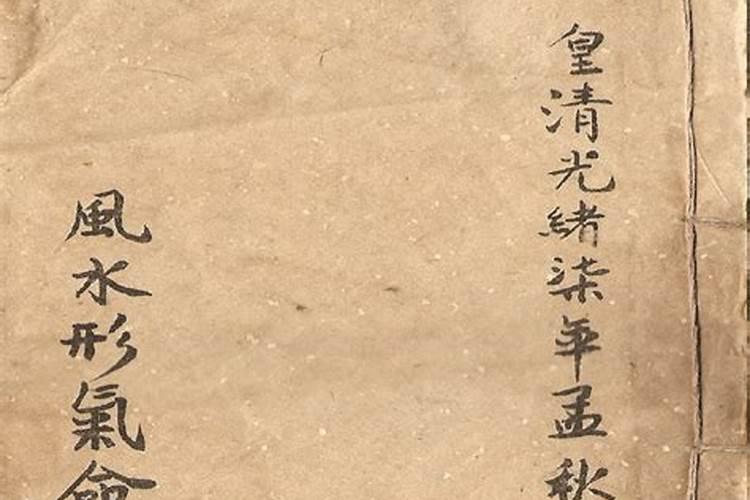 皇清光緒柒年孟秋
風水形氣